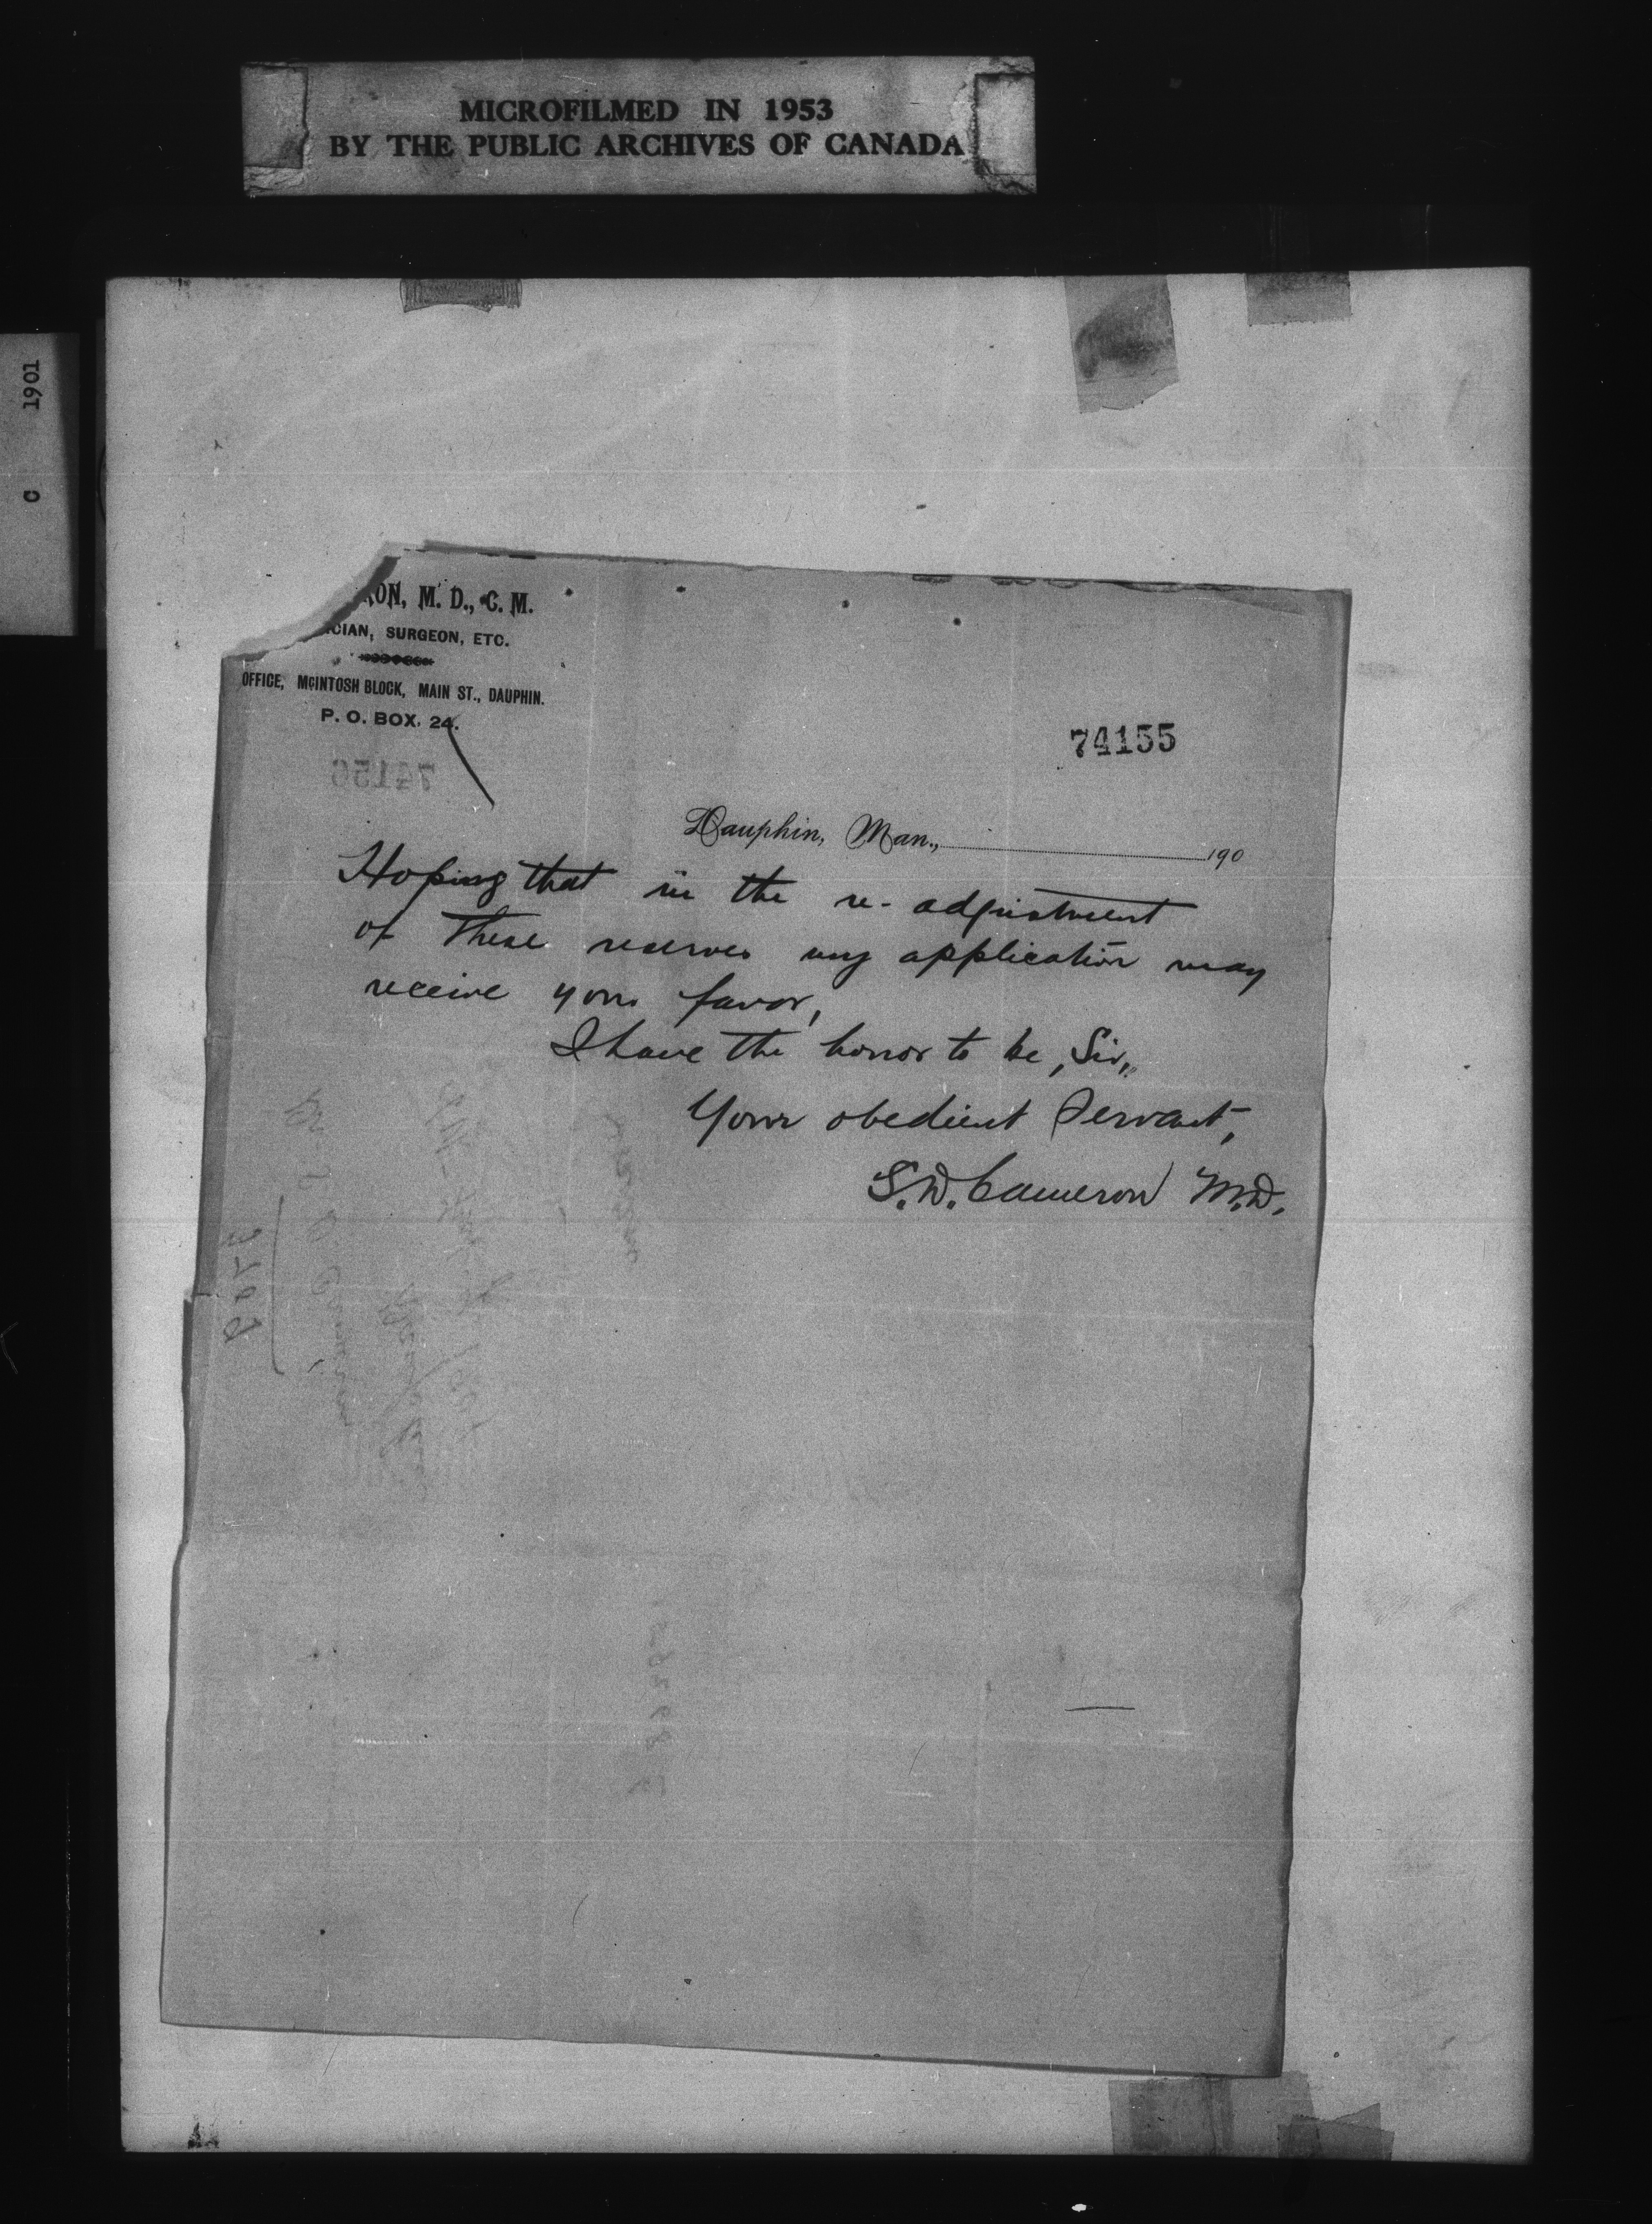 MICROFILMED IN 1953
BY THE PUBLIC ARCHIVES OF CANADA
C 1901
RON, M. D., C. M.
ICIAN, SURGEON, ETC.
OFFICE, McINTOSH BLOCK, MAIN ST., DAUPHIN.
P. O. BOX. 24.
74155
74156
Dauphin, Man., 190
Hoping that in the re-adjustment
of these reserves my application may
receive your favor,
I have the honor to be, Sir,
Your obedient Servant,
S. W. Cameron M.D.